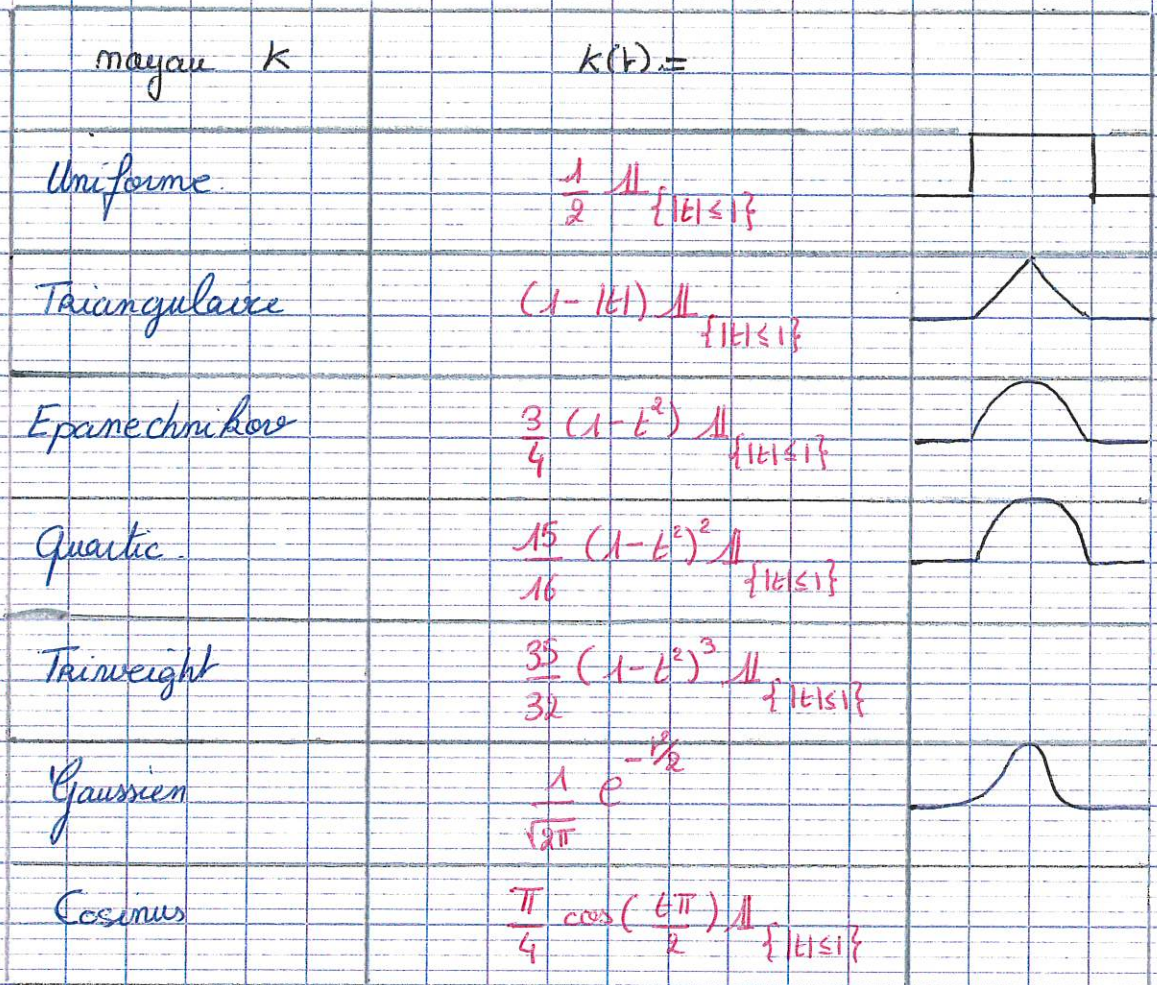 noyau K K(t) =
Uniforme. 1/2 𝟙_{|t|≤1}
Triangulaire (1-|t|) 𝟙_{|t|≤1}
Epanechnikov 3/4 (1-t²) 𝟙_{|t|≤1}
Quartic. 15/16 (1-t²)² 𝟙_{|t|≤1}
Triweight 35/32 (1-t²)³ 𝟙_{|t|≤1}
Gaussien 1/√2π e^{-t²/2}
Cosinus π/4 cos(tπ/2) 𝟙_{|t|≤1}